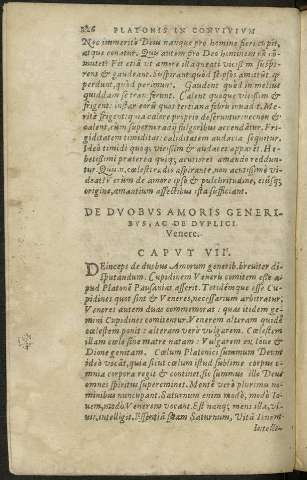 226 PLATONIS IN CONVIVIUM
Nec immerito Deū nanque pro homine fieri cupit,
atque conatur. Quis autem pro Deo hominem nō cō-
mutet? Fit etiā ut amore illaqueati vicissim suspi-
rent & gaudeant. Suspirant quòd se ipsos amittūt
perdunt, quòd perimunt. Gaudent quòd in melius
quiddam se transferunt. Calent quoque vicissim &
frigent. instar eorū quos tertiana febris invadit. Me-
ritò frigent qui à calore proprio deseruntur: necnon &
calent, cùm superni radij fulgoribus accendātur. Fri-
giditatem timiditas: caliditatem audacia sequitur.
Ideò timidi quoque vicissim & audaces apparēt. He-
betissimi præterea quique, acutiores amando reddun-
tur. Quis enim, cœlesti radio aspirante, non acutissimè vi-
deat? Verùm de amore ipso & pulchritudine, eiúsque
origine, amantium affectibus ista sufficiant.
DE DVOBVS AMORIS GENERI-
BVS, AC DE DVPLICI
Venere.
CAPVT VII.
DEinceps de duobus Amorum generib. breuiter di-
sputandum. Cupidinem Veneris comitem esse a-
pud Platonē Pausanias asserit. Totidémque esse Cu-
pidines quot sint & Veneres, necessarium arbitratur.
Veneres autem duas commemorat: quas itidem ge-
mini Cupidines comitentur. Venerem alteram quidē
cœlestem ponit: alteram verò vulgarem. Cœlestem
illam cœlo sine matre natam: Vulgarem ex Ioue &
Dione genitam. Cœlum Platonici summum Deum
ideò vocāt, quia sicut cœlum istud sublime corpus o-
mnia corpora regit & continet, sic summus ille Deus
omnes spiritus supereminet. Mentē verò plurimis no-
minibus nuncupant. Saturnum enim modò, modò Io-
uem, modò Venerem vocant. Est nanque mens illa, vi-
uit, intelligit. Essentiā istam Saturnum, Vitā Iouem
Intelli-